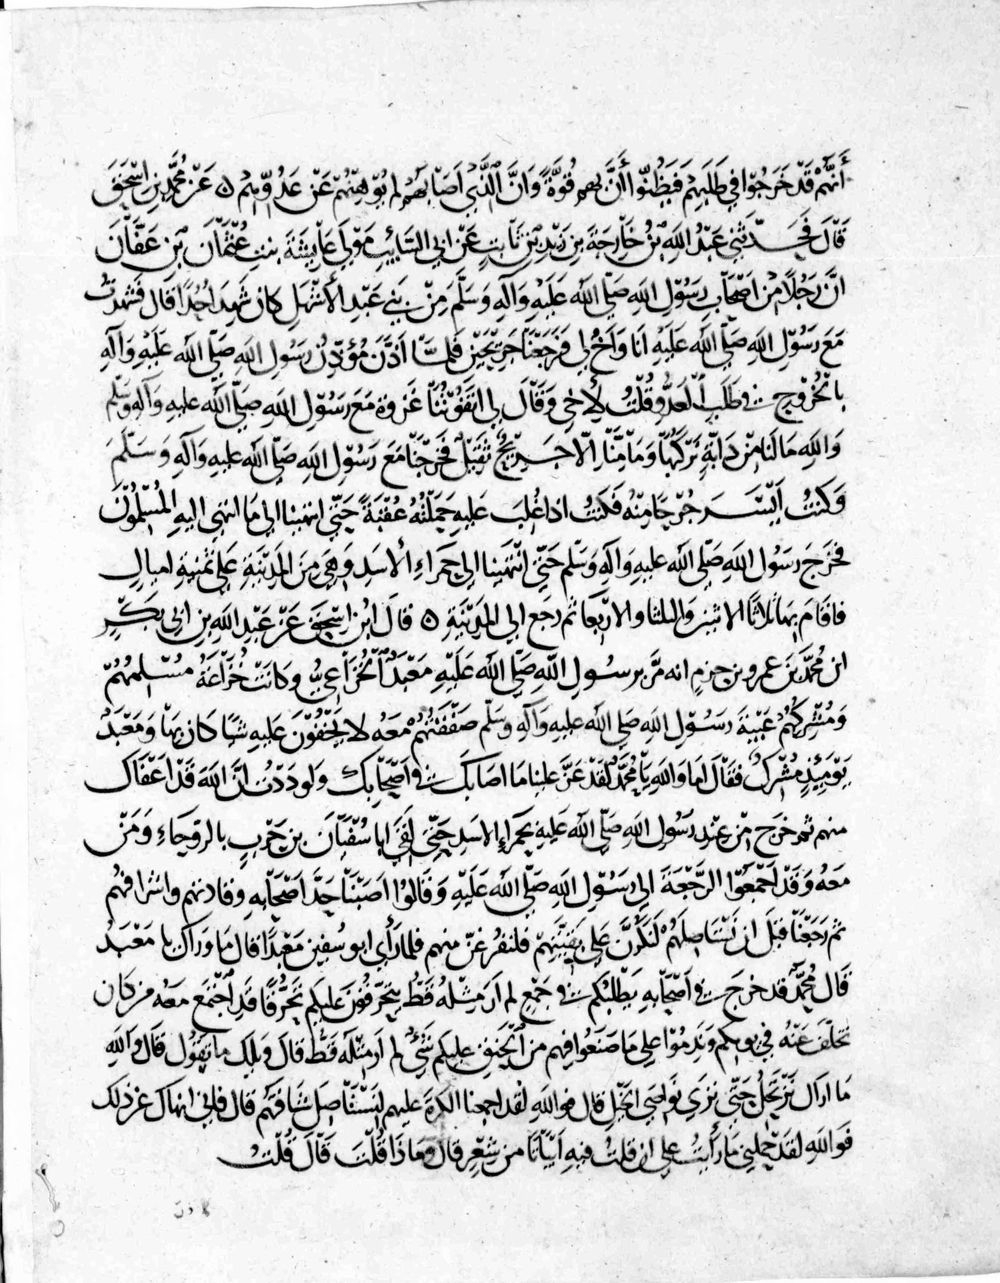 أنهم قد خرجوا في طلبهم فيظنوا أن بهم قوة وان الذي اصابهم لم يوهنهم عن عدوهم ٥ عن محمد بن اسحق
قال فحدثني عبد الله بن خارجة بن زيد بن ثابت عن ابي السايب مولى عايشة بنت عثمان بن عفان
ان رجلا من اصحاب رسول الله صلى الله عليه وآله وسلم من بني عبد الأشهل كان شهد احدا قال فشهدت
مع رسول الله صلى الله عليه انا واخ لي فرجعنا جريحين فلما أذن مؤذن رسول الله صلى الله عليه وآله
بالخروج في طلب العدو وقلت لأخي وقال لي اتفوتنا غزوة مع رسول الله صلى الله عليه وآله وسلم
والله ما لنا من دابة نركبها وما منا الا جريح ثقيل فخرجنا مع رسول الله صلى الله عليه وآله وسلم
وكنت ايسر جرحا منه فكنت اذا غلب عليه حملته عقبة حتى انتهينا الى ما انتهى اليه المسلمون
فخرج رسول الله صلى الله عليه وآله وسلم حتى انتهينا الى حمراء الاسد وهي من المدينة على ثمنية اميال
فاقام بها ثلاثا الاثنين والثلثا والاربعا ثم رجع الى المدينة ٥ قال ابن اسحق عن عبد الله بن ابي بكر
ابن محمد بن عمرو بن حزم انه مر برسول الله صلى الله عليه معبد الخزاعي وكانت خزاعة مسلمهم
ومشركهم عيبة رسول الله صلى الله عليه وآله وسلم صفقتهم معه لا يخفون عليه شيا كان بها ومعبد
يومئذ مشرك فقال اما والله يا محمد لقد عز علينا ما اصابك في أصحابك ولوددت ان الله قد اعفاك
منهم ثم خرج من عند رسول الله صلى الله عليه بحمراء الاسد حتى لقي ابا سفيان بن حرب بالروحاء ومن
معه وقد اجمعوا الرجعة الى رسول الله صلى الله عليه وقالوا اصبنا حد اصحابه وقادتهم واشرافهم
ثم رجعنا قبل ان نستاصلهم لنكرن على بقيتهم فلنفرغن منهم فلما رأى ابو سفين معبدا قال ما وراك يا معبد
قال محمد قد خرج في أصحابه يطلبكم في جمع لم ار مثله قط يتحرقون عليكم تحرقا قد اجتمع معه من كان
تخلف عنه في يومكم وندموا على ما صنعوا فيهم من الحنق عليكم شئ لم ار مثله قط قال ويلك ما تقول قال والله
ما اراك ترتحل حتى ترى نواصي الخيل قال فوالله لقد اجمعنا الكرة عليهم لنستاصل شافتهم قال فاني انهاك عن ذلك
فوالله لقد حملني ما رأيت على ان قلت فيه ابياتا من شعر قال وماذا قلت قال قلت